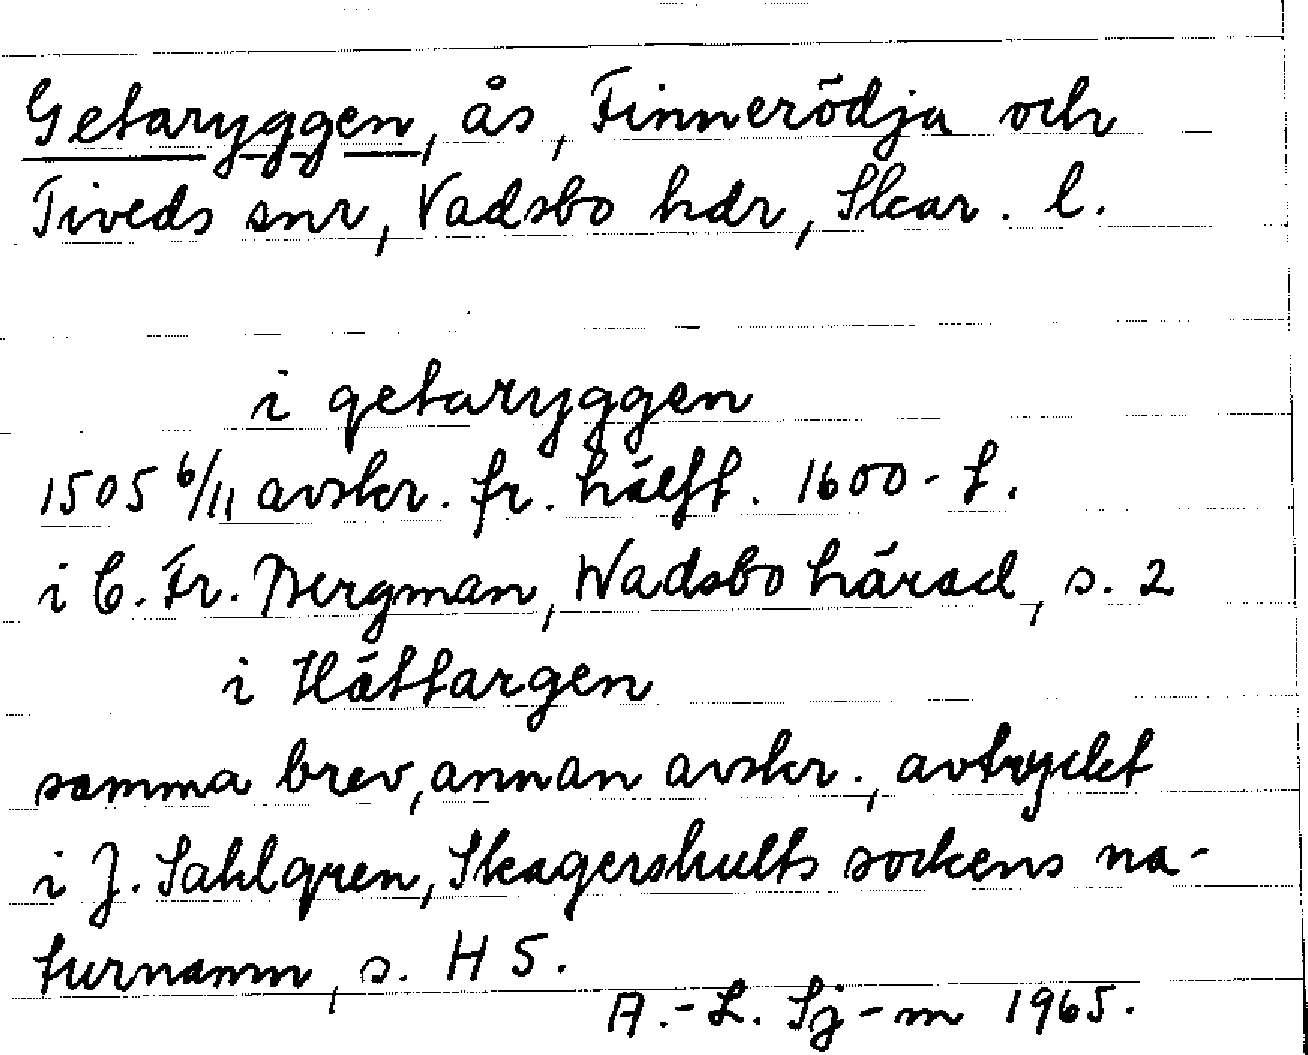 Getaryggen, ås, Finnerödja och
Tiveds snr, Vadsbo hdr, Skar. l.
i getaryggen
1505 6/11 avskr. fr. hälft. 1600-t.
i C. Fr. Bergman, Wadsbo härad, s. 2
i Håttargen
samma brev, annan avskr., avtryckt
i J. Sahlgren, Skagershults sockens na-
turnamn, s. H 5.
A.-L. Sj-m 1965.